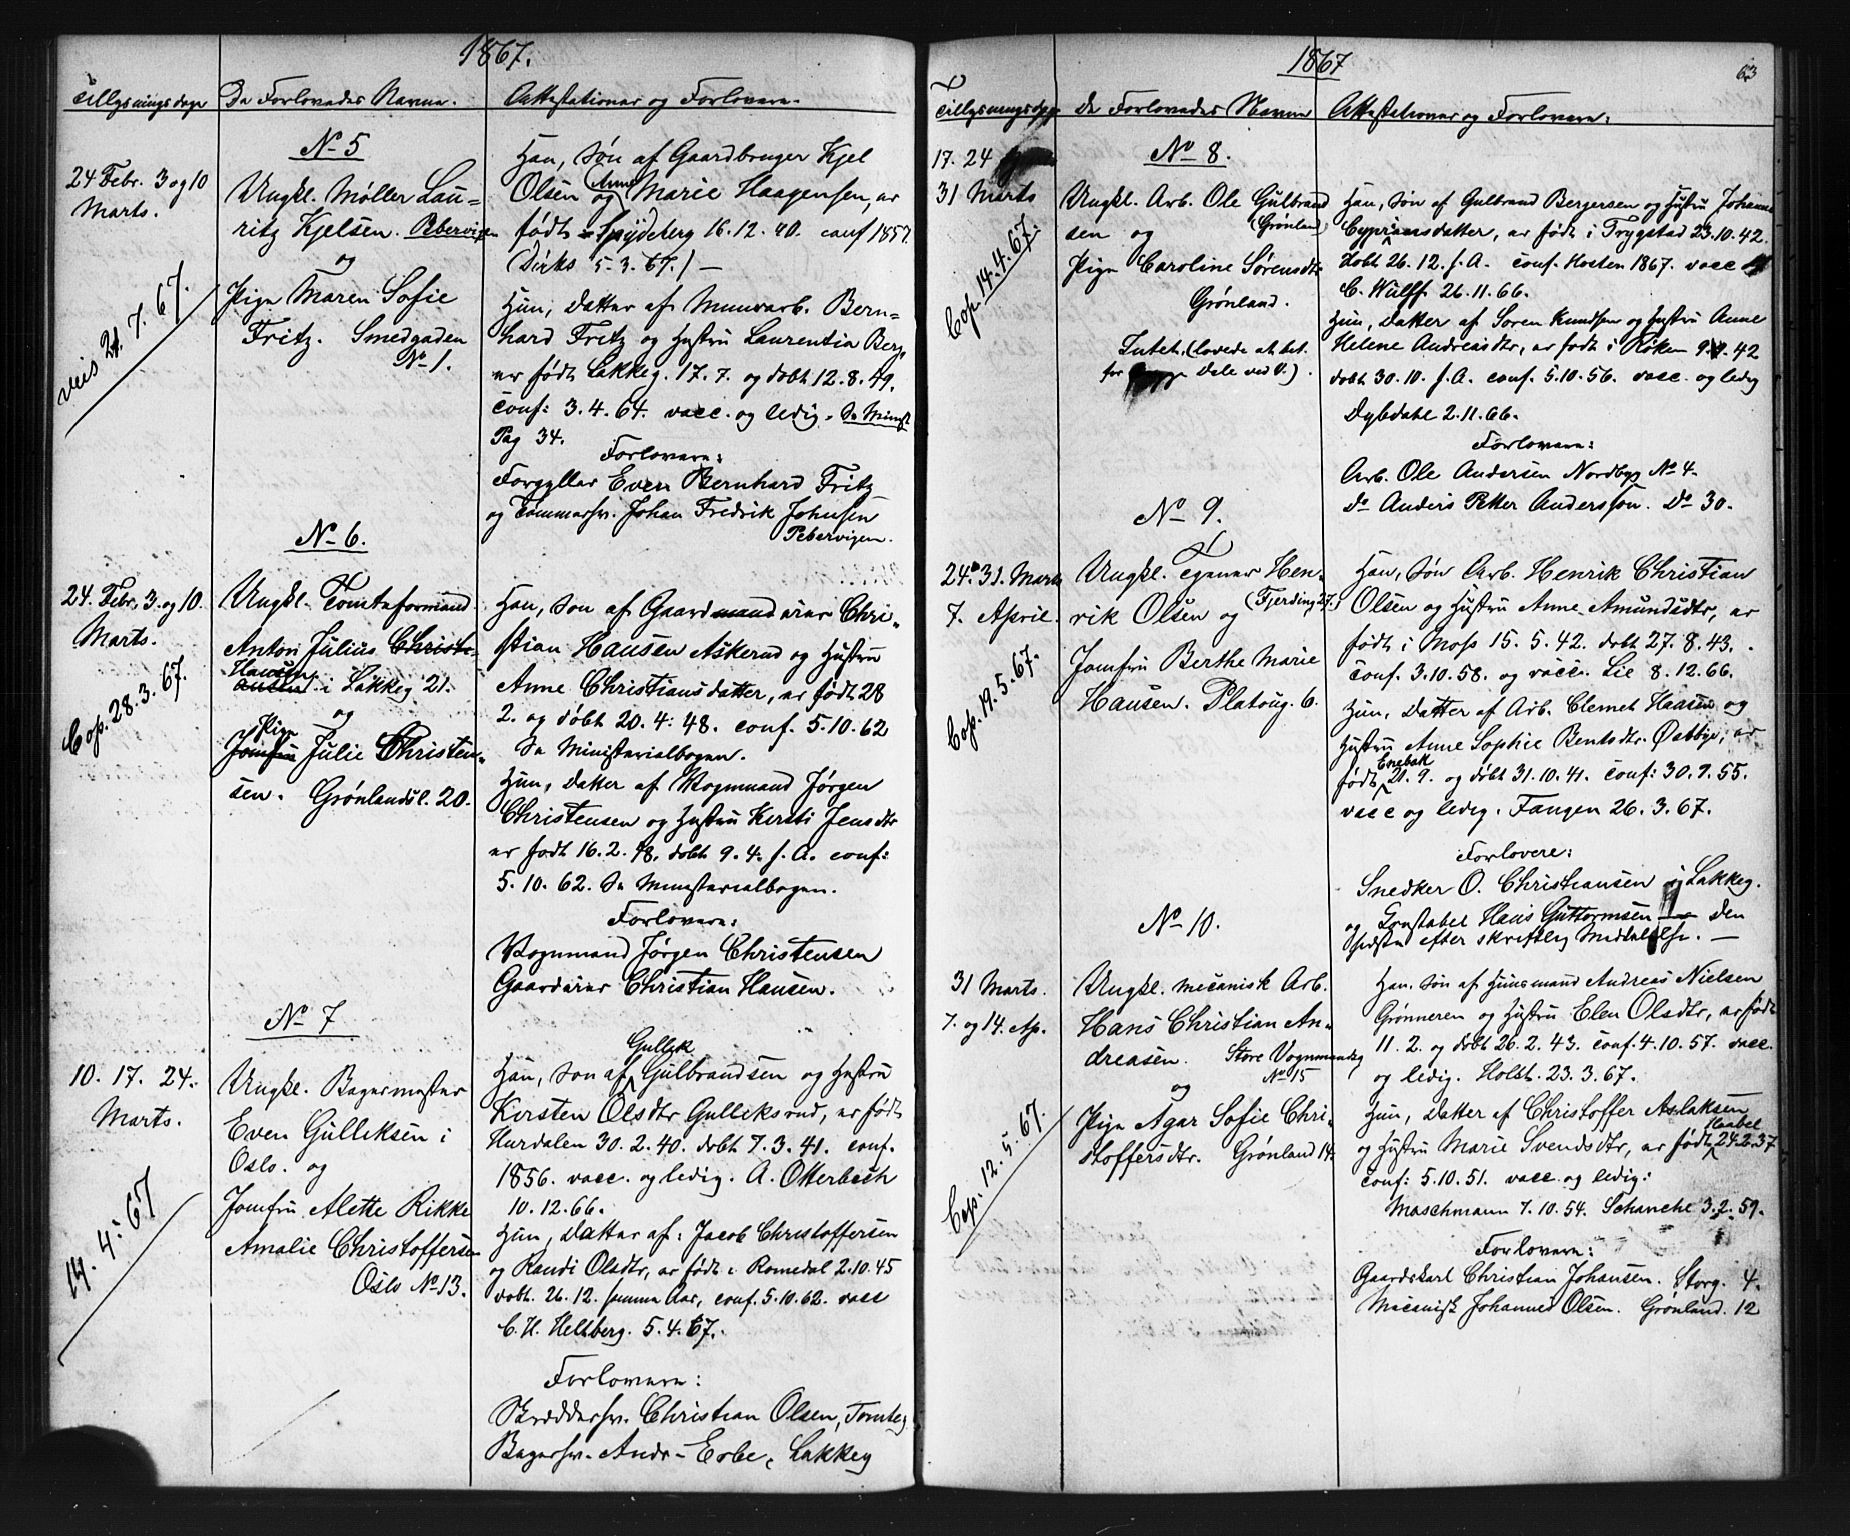 1867.
Tillysningsdage De Forlovedes Navne. Attestationer og Forlovere.
No 5
24 Febr. 3 og 10
Marts.
Ungkl. Møller Lau=
ritz Kjelsen. Pebervigen
og
Pige Maren Sofie
Fritz. Smedgaden
No 1.
viet 21.7.67.
Han, Søn af Gaardbruger Kjel
Olsen og Anne Marie Haagensen, er
født i Spydeberg 16.12.40. conf 1857.
(Dirks 5.3.67.) —
Hun, Datter af Murarb. Bern=
hard Fritz og Hustru Laurentia Berg,
er født Lakkeg. 17.7. og døbt 12.8.49.
conf: 3.4.64. vacc. og ledig. Se Minist
Pag 34.
Forlovere:
Forgylder Even Bernhard Fritz
og Tømmersv. Johan Fredrik Johnsen
Pebervigen.
No 6.
24. Febr. 3. og 10.
Marts.
Cop. 28.3.67.
Ungkl. Tomteformand
Anton Julius Christi-
Hansen
ansen i Lakkeg 21.
og
Pige
Jomfru Julie Christen-
sen. Grønlandsl. 20.
Han, Søn af Gaardmand eier Chri-
stian Hansen Askerud og Hustru
Anne Christiansdatter, er født 28
2. og døbt 20.4.48. conf. 5.10.62
Se Ministerialbogen.
Hun, Datter af Vognmand Jørgen
Christensen og Hustru Kersti Jensdtr
er født 16.2.48. døbt 9.4. s.A. conf:
5.10.62. Se Ministerialbogen.
Forlovere:
Vognmand Jørgen Christensen
Gaardeier Christian Hansen.
No 7
10. 17. 24.
Marts.
14.4.67
Ungkl. Bagermester
Even Gulliksen i
Oslo. og
Jomfru Alette Rikke
Amalie Christoffersen
Oslo No 13.
Gullik
Han, Søn af Gulbrandsen og Hustru
Kirsten Olsdtr Gulliksrud, er født
Hurdalen 30.2.40. døbt 7.3.41. conf.
1856. vacc. og ledig. A. Otterbech
10.12.66.
Hun, Datter af: Jacob Christoffersen
og Randi Olsdtr, er født i Romedal 2.10.45
døbt. 26.12. samme Aar, conf. 5.10.62. vacc
C. H. Hellberg. 5.4.67.
Forlovere:
Skræddersv. Christian Olsen, Tomteg
Bagersv. Andr. Erbe, Lakkeg
1867
63
Tillysningsdage De Forlovedes Navne Attestationer og Forlovere:
No 8.
17. 24
31 Marts
Cop. 14.4.67.
Ungkl. Arb. Ole Gulbrand
sen og (Grønland)
Pige Caroline Sørensdtr
Grønland.
Intet. (lovede at bet.
for Dele ved V.).
Han, Søn af Gulbrand Bergersen og Hustru Johanne
Cypriansdatter, er født i Trygstad 23.10.42.
døbt 26.12. s.A. conf. Høsten 1867. vacc
C. Wulff 26.11.66.
Hun, Datter af Soren Knudsen og Hustru Anne
Helene Andreasdtr, er født i Røken 9.9.42
døbt 30.10. s.A. conf. 5.10.56. vacc. og ledig
Dybdahl 2.11.66.
Forlovere:
Arb. Ole Andersen Nordbyg No 4.
Do Anders Petter Andersson. Do 30.
No 9.
24. 31. Marts
7. April.
Cop. 19.5.67.
Ungkl. Tegner Hen-
rik Olsen og (Fjerding 27.)
Jomfru Berthe Marie
Hansen. Platoug. 6.
Han, Søn Arb. Henrik Christian
Olsen og Hustru Anne Amundsdtr, er
født i Moss 15.5.42. døbt 27.8.43.
conf. 3.10.58. og vacc. Lie 8.12.66.
Hun, Datter af Arb. Clemet Hansen og
Hustru Anne Sophie Bentsdtr. Østbye, er
Enebak
født 21.9. og døbt 31.10.41. conf: 30.9.55.
vacc og ledig. Fangen 26.3.67.
Forlovere:
Snedker O. Christiansen i Lakkeg.
og Constabel Hans Guttormsen — Den
sidste efter skriftlig Meddelelse. —
No 10.
31 Marts.
7. og 14. Ap.
Cop. 12.5.67.
Ungkl. mecanisk Arb.
Hans Christian An-
dreasen. Store Vognmandsg
og No 15
Pige Agar Sofie Chri-
stoffersdtr. Grønland 14.
Han, Søn af Husmand Andreas Nielsen
Grønneren og Hustru Elen Olsdtr, er født
11.2. og døbt 26.2.43. conf. 4.10.57. vacc.
og ledig. Holst. 23.3.67.
Hun, Datter af Christoffer Aslaksen
Haabel
og Hustru Marie Svendsdtr, er født 24.2.37
conf: 5.10.51. vacc. og ledig:
Maschmann 7.10.54. Schanche 3.2.59.
Forlovere:
Gaardskarl Christian Johansen. Storg. 4.
Mecanisk Johannes Olsen. Grønland. 12